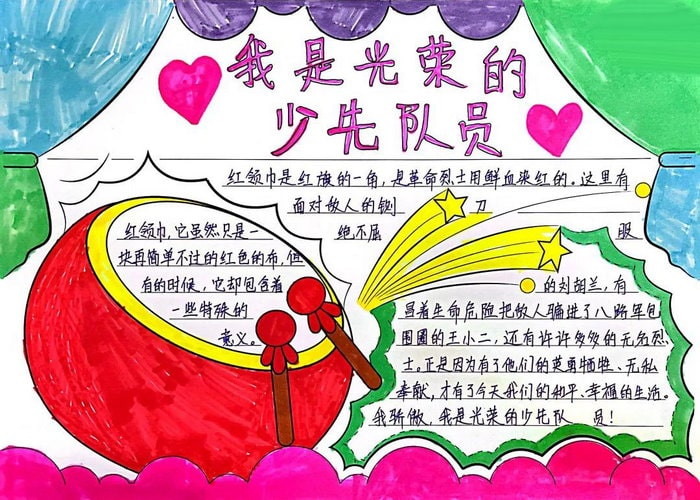 我是光荣的
少先队员
红领巾是红旗的一角，是革命烈士用鲜血染红的。这里有
面对敌人的铡 刀
绝不屈 服
的刘胡兰，有
冒着生命危险把敌人骗进了八路军包
围圈的王小二，还有许许多多的无名烈
士。正是因为有了他们的英勇牺牲、无私
奉献，才有了今天我们的和平、幸福的生活。
我骄傲，我是光荣的少先队 员！
红领巾，它虽然只是一
块再简单不过的红色的布，但
有的时候，它却包含着
一些特殊的
意义。